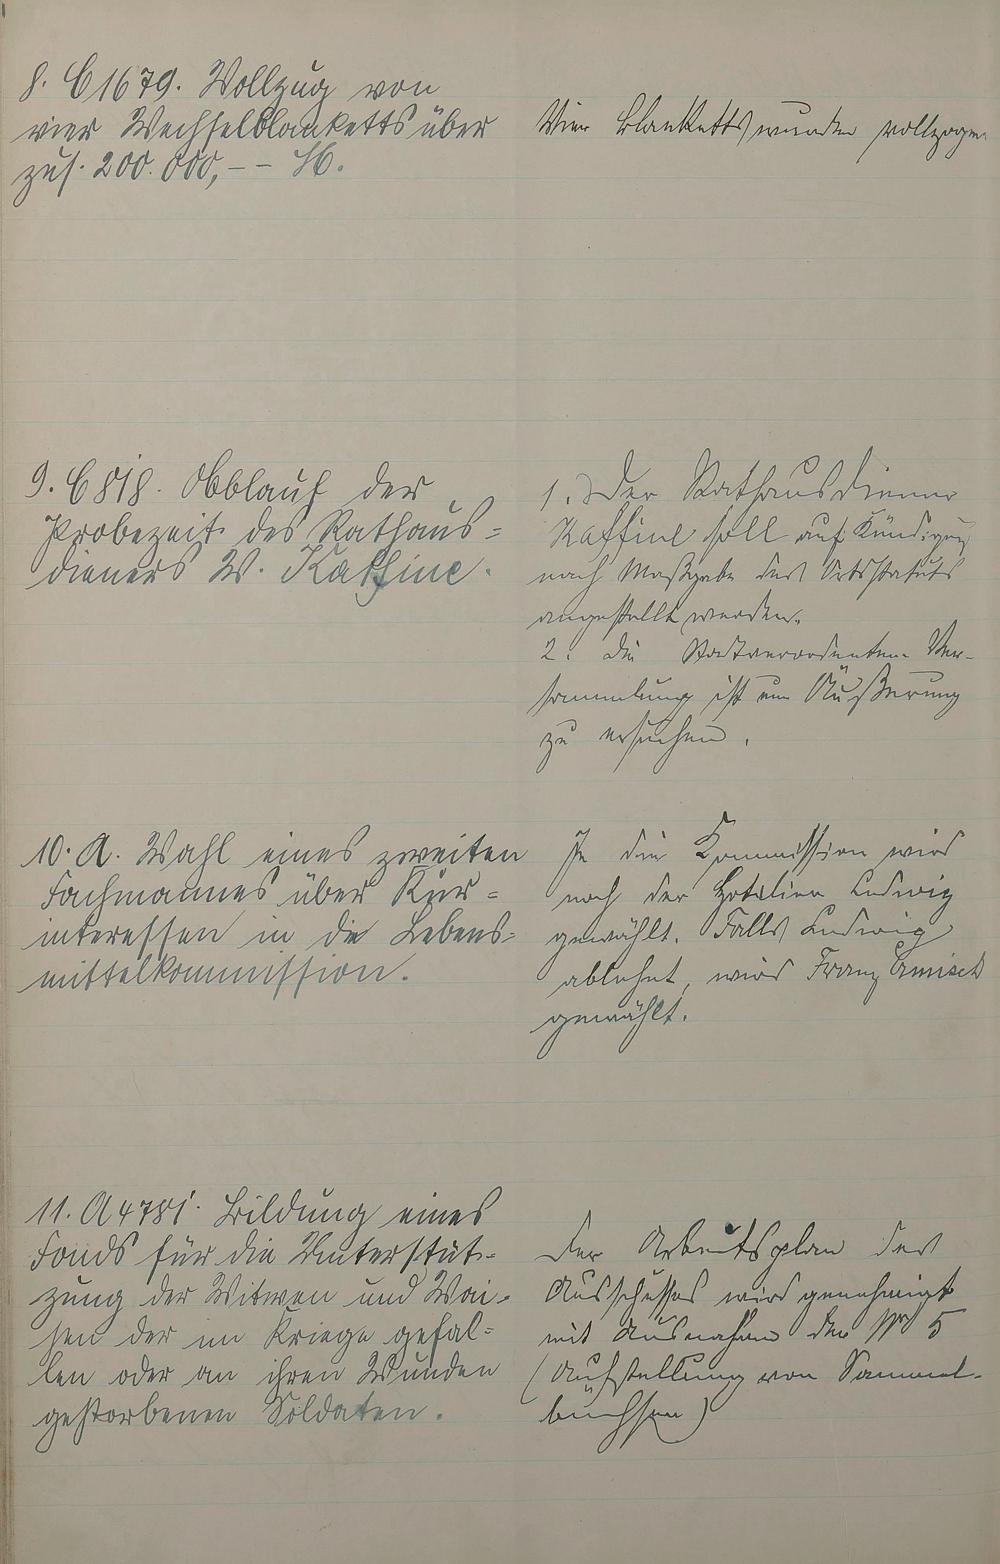 8. C 1679. Vollzug von
vier Wechselblanketts über
zus. 200.000,-- M.
Vier Blanketts wurden vollzogen
9. C 818. Ablauf der
Probezeit des Rathaus=
dieners W. Kaffine.
1. Der Rathausdiener
Kaffine soll auf Kündigung
nach Maßgabe des Ortsstatuts
angestellt werden.
2. Die Stadtverordneten-Ver-
sammlung ist um Äußerung
zu ersuchen.
10. A. Wahl eines zweiten
Fachmannes über Kur=
interessen in die Lebens=
mittelkommission.
In die Kommission wird
noch der Hotelier Ludwig
gewählt. Falls Ludwig
ablehnt, wird Franz
gewählt.
11. A 4781. Bildung eines
Fonds für die Unterstüt=
zung der Witwen und Wai=
sen der im Kriege gefal=
len oder an ihren Wunden
gestorbenen Soldaten.
Der Arbeitsplan des
Ausschusses wird genehmigt
mit Ausnahme der No 5
(Aufstellung von Sammel-
büchsen)